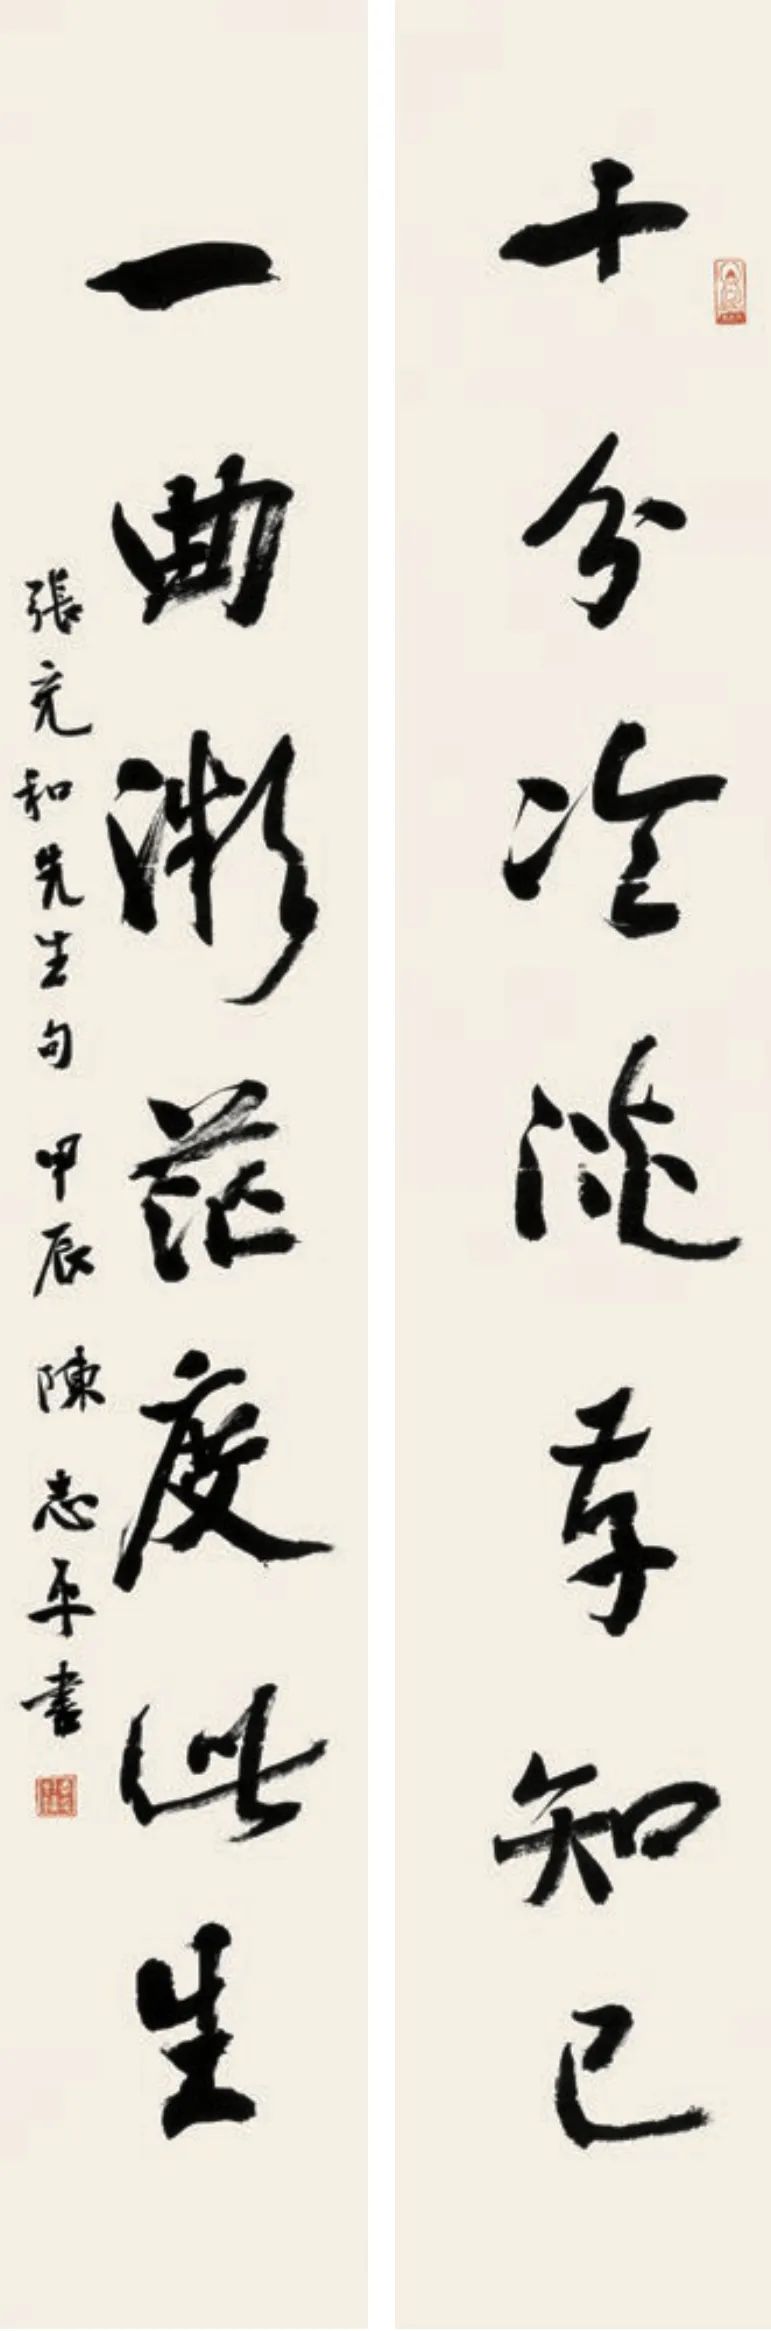 十分冷淡存知己
一曲渺茫度此生
張充和先生句 甲辰 陳志平書